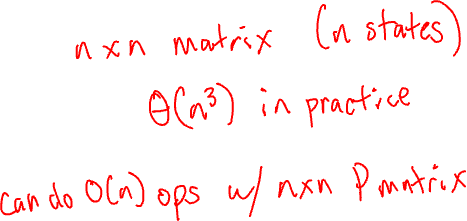 nxn matrix (n states)
Θ(n³) in practice
can do O(n) ops w/ nxn P matrix